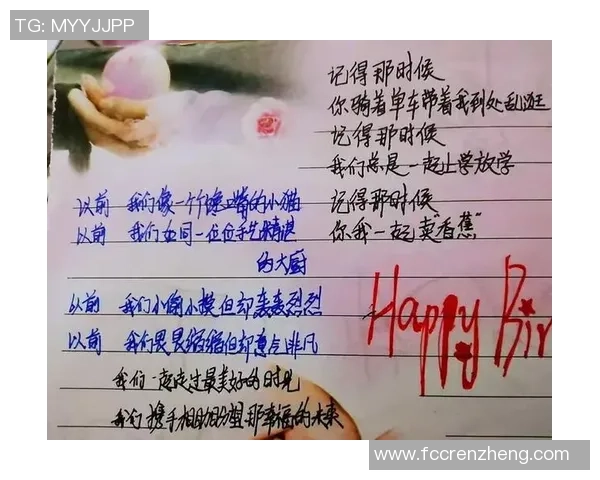 TG: MYYJJPP
记得那时候
你骑着单车带着我到处乱逛
记得那时候
我们总是一起上学放学
记得那时候
你我一起卖"香蕉"
以前 我们像一个个馋嘴的小猫
以前 我们如同一位位手艺精湛
的大厨
以前 我们小偷小摸但却轰轰烈烈
以前 我们畏畏缩缩但却意点非凡
我们一起走过最美好的时光
我们携手相助盼望那幸福的未来
Happy Bir
www.fccrenzheng.com